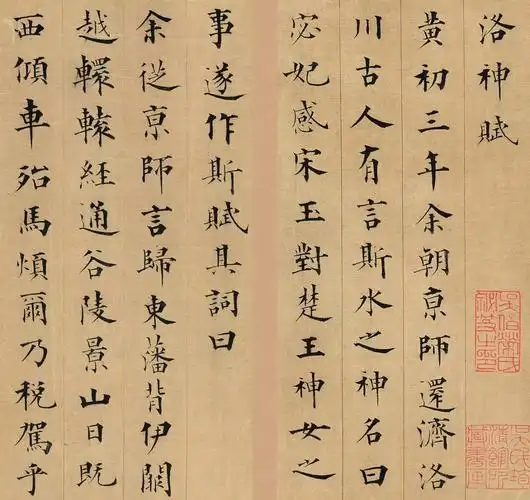 洛神賦
黃初三年余朝亰師還濟洛
川古人有言斯水之神名曰
宓妃感宋玉對楚王神女之
事遂作斯賦其詞曰
余從亰師言歸東藩背伊闕
越轘轅經通谷陵景山日既
西傾車殆馬煩爾乃稅駕乎